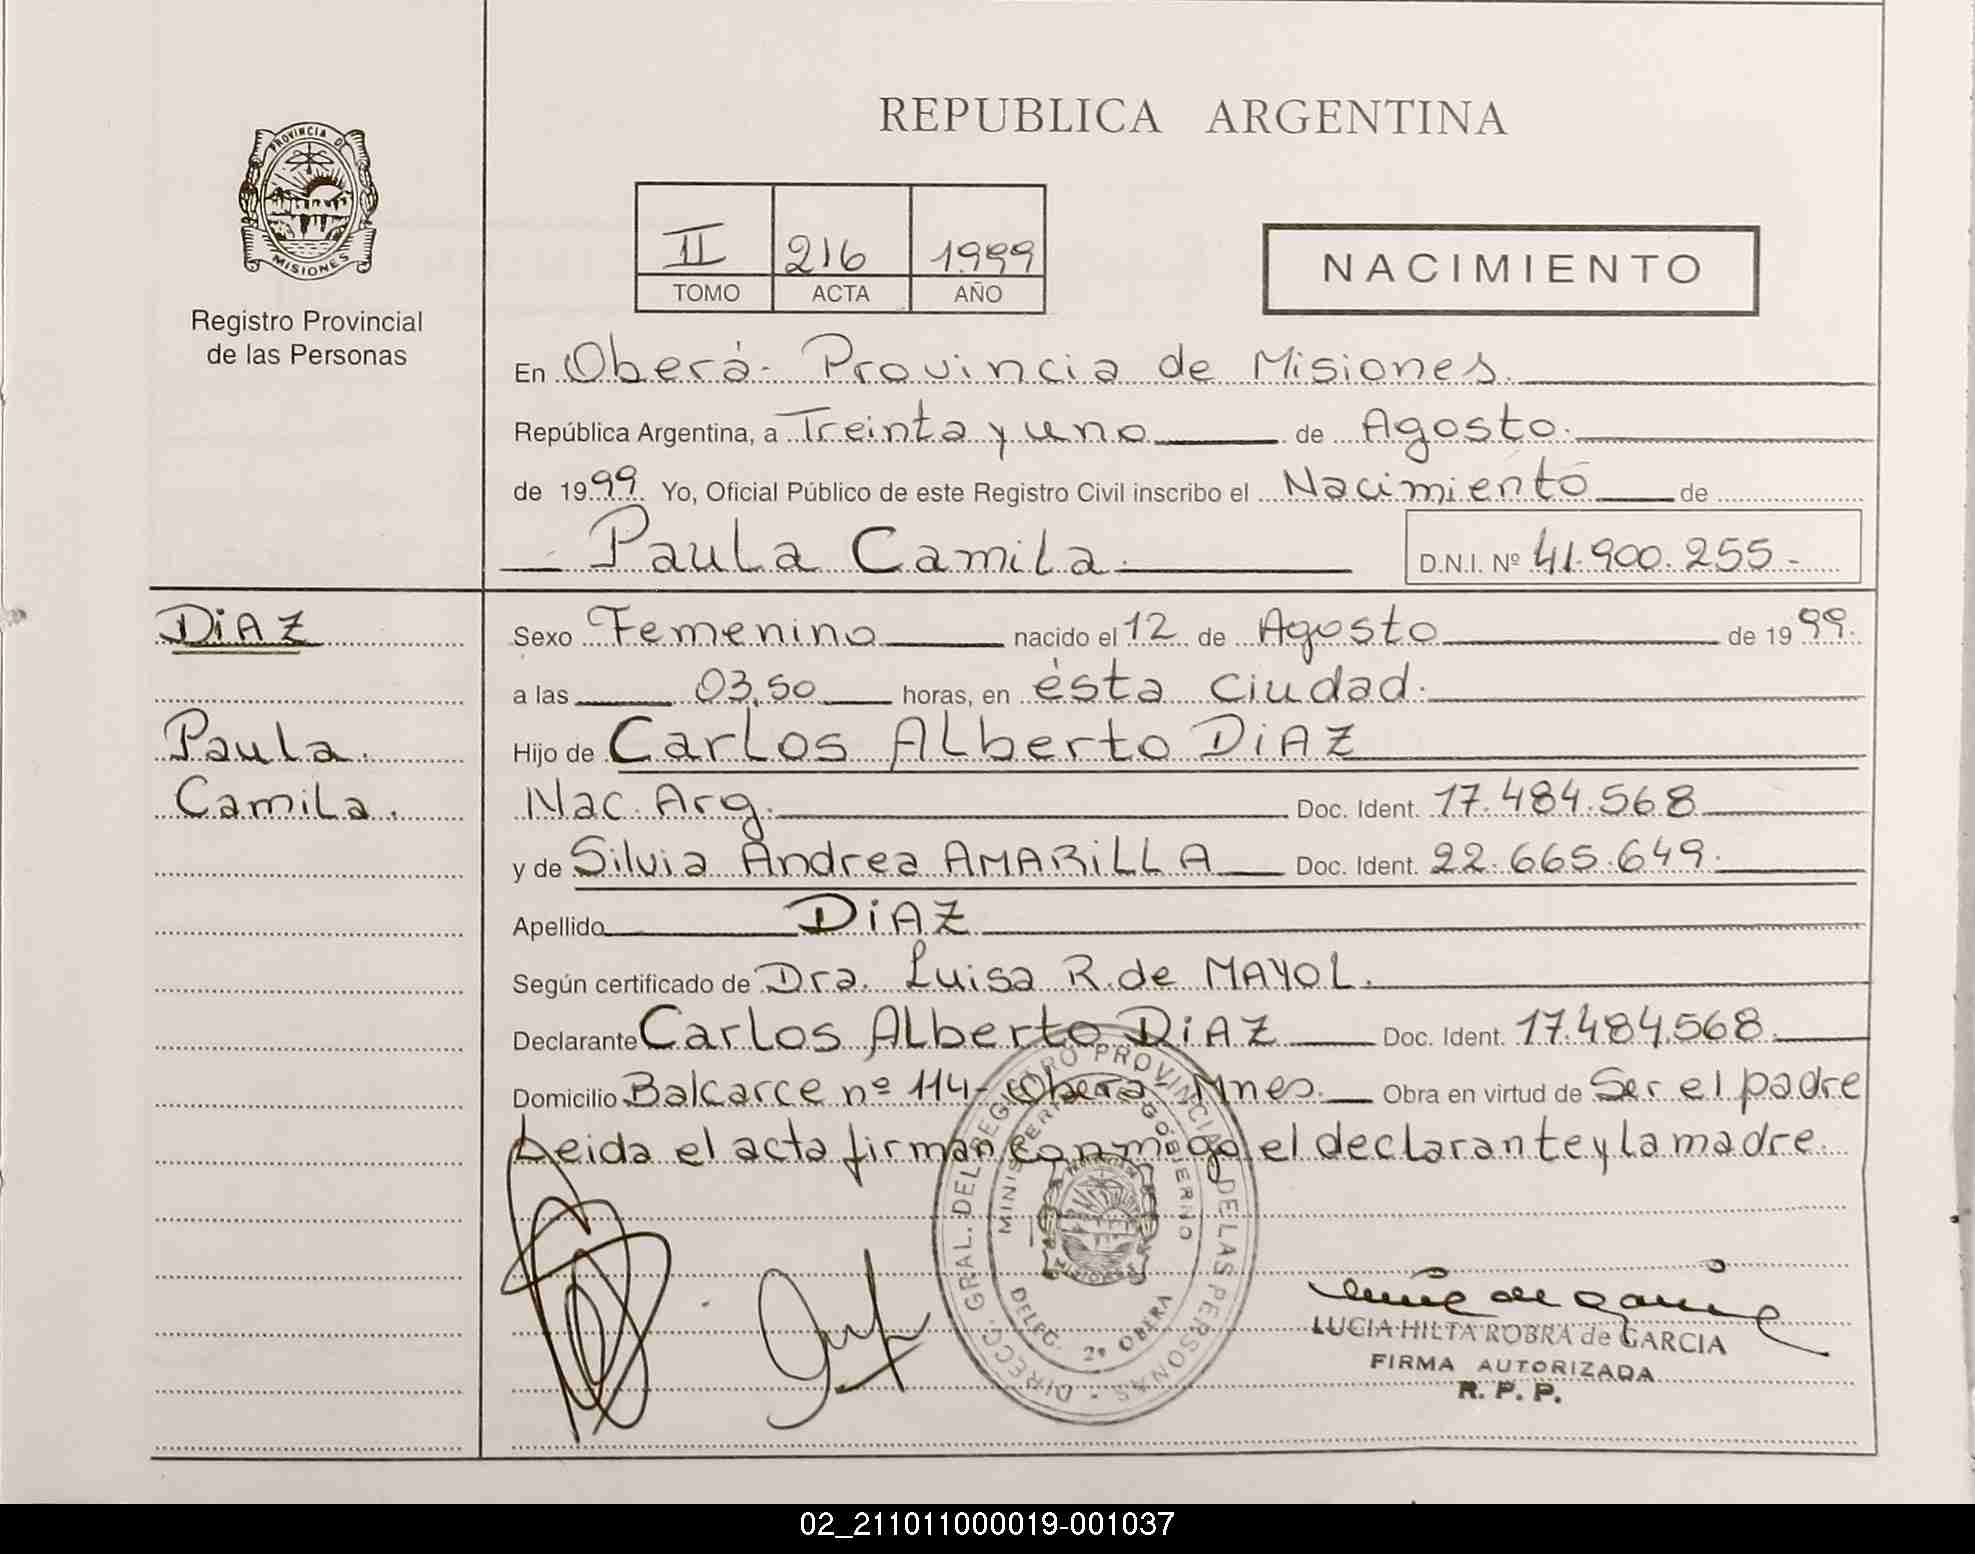 REPUBLICA ARGENTINA
PROVINCIA DE
MISIONES
Registro Provincial
de las Personas
II 216 1999
TOMO ACTA AÑO
NACIMIENTO
En Oberá - Provincia de Misiones.
República Argentina, a Treinta y uno de Agosto.
de 1999 Yo, Oficial Público de este Registro Civil inscribo el Nacimiento de
Paula Camila. D.N.I. Nº 41.900.255-
DiAZ
Paula.
Camila.
Sexo Femenino nacido el 12 de Agosto de 1999.
a las 03,50 horas, en ésta Ciudad.
Hijo de Carlos Alberto DiAZ
Nac. Arg. Doc. Ident. 17.484.568
y de Silvia Andrea AMARiLLA Doc. Ident. 22.665.649.
Apellido DiAZ
Según certificado de Dra. Luisa R. de MAYOL.
Declarante Carlos Alberto DiAZ Doc. Ident. 17.484.568.
Domicilio Balcarce nº 114- Oberá- Mnes. Obra en virtud de Ser el padre
Leida el acta firman conmigo el declarante y la madre.
DIRECC. GRAL. DEL REGISTRO PROVINCIAL DE LAS PERSONAS
MINISTERIO GOBIERNO
MISIONES
DELEG. 2ª OBERA
LUCIA HILTA ROBRA de GARCIA
FIRMA AUTORIZADA
R. P. P.
02_211011000019-001037